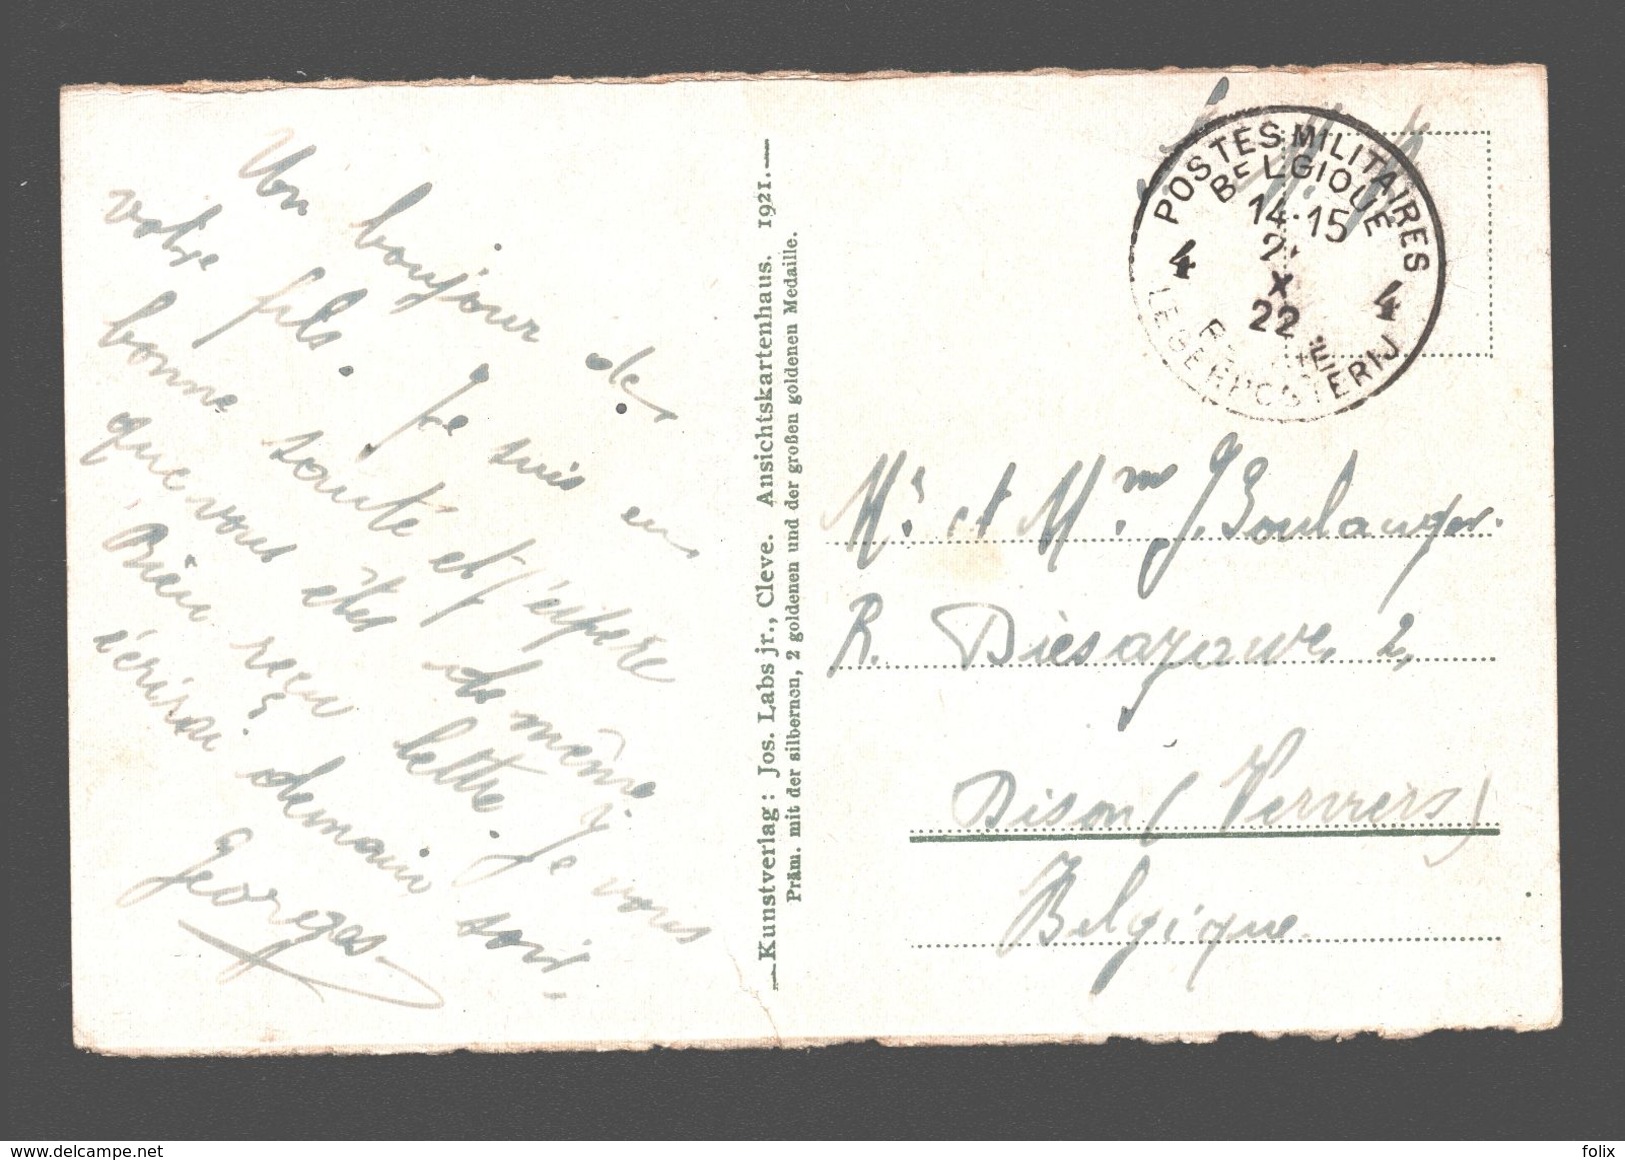 Un bonjour de
votre fils. Je suis en
bonne santé et j'espère
que vous êtes de même.
Bien reçu lettre. Je vous
écrirai demain soir.
Georges
Kunstverlag: Jos. Labs jr., Cleve. Ansichtskartenhaus. 1921.
Präm. mit der silbernen, 2 goldenen und der großen goldenen Medaille.
S. M.
POSTES MILITAIRES
BELGIQUE
14-15
X
22
4 4
LEGERPOSTERIJ
Mr. et Mme. J. Boulanger.
R. 2,
Dison (Verviers)
Belgique.
felix